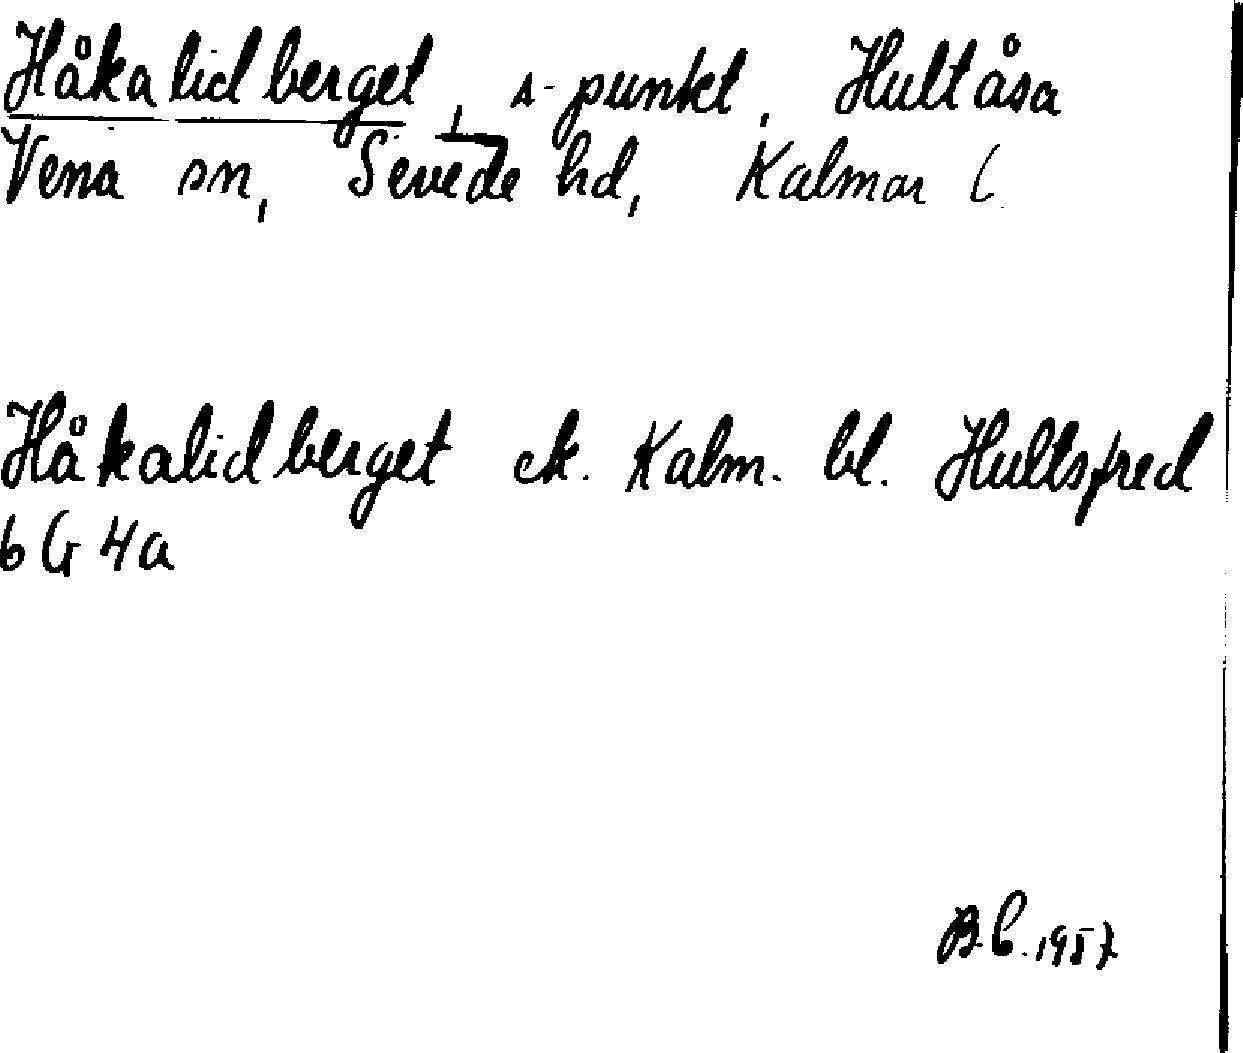 Håkalidberget, s-punkt, Hultåsa
Vena sn, Sevede hd, Kalmar l.
Håkalidberget ek. Kalm. bl. Hultsfred
6 G 4a
1957